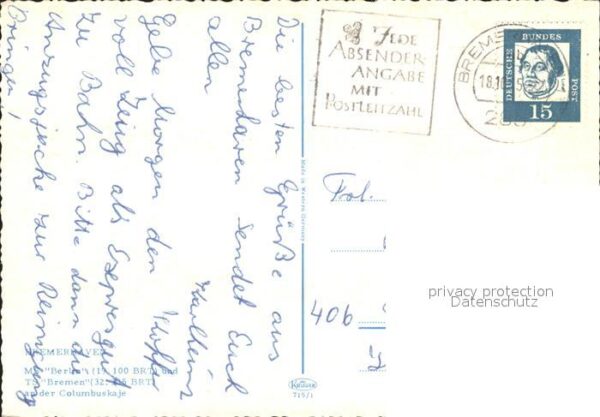 Die besten Grüße aus
Bremerhaven sendet Euch
allen
Karlheinz
Gebe Morgen den Koffer
voll Zeug als Expressgut
zu Bahn. Bitte dann die
Anzugsjacke zur Reinigung
bringen!
BREMERHAVEN
MS "Berlin" (19 100 BRT) und
TS "Bremen" (32 BRT)
an der Columbuskaje
Made in Western Germany
Krüger
715/1
JEDE
ABSENDER-
ANGABE
MIT
POSTLEITZAHL
BREME
18.10
285
DEUTSCHE
BUNDES
POST
15
Frl.
406
privacy protection
Datenschutz